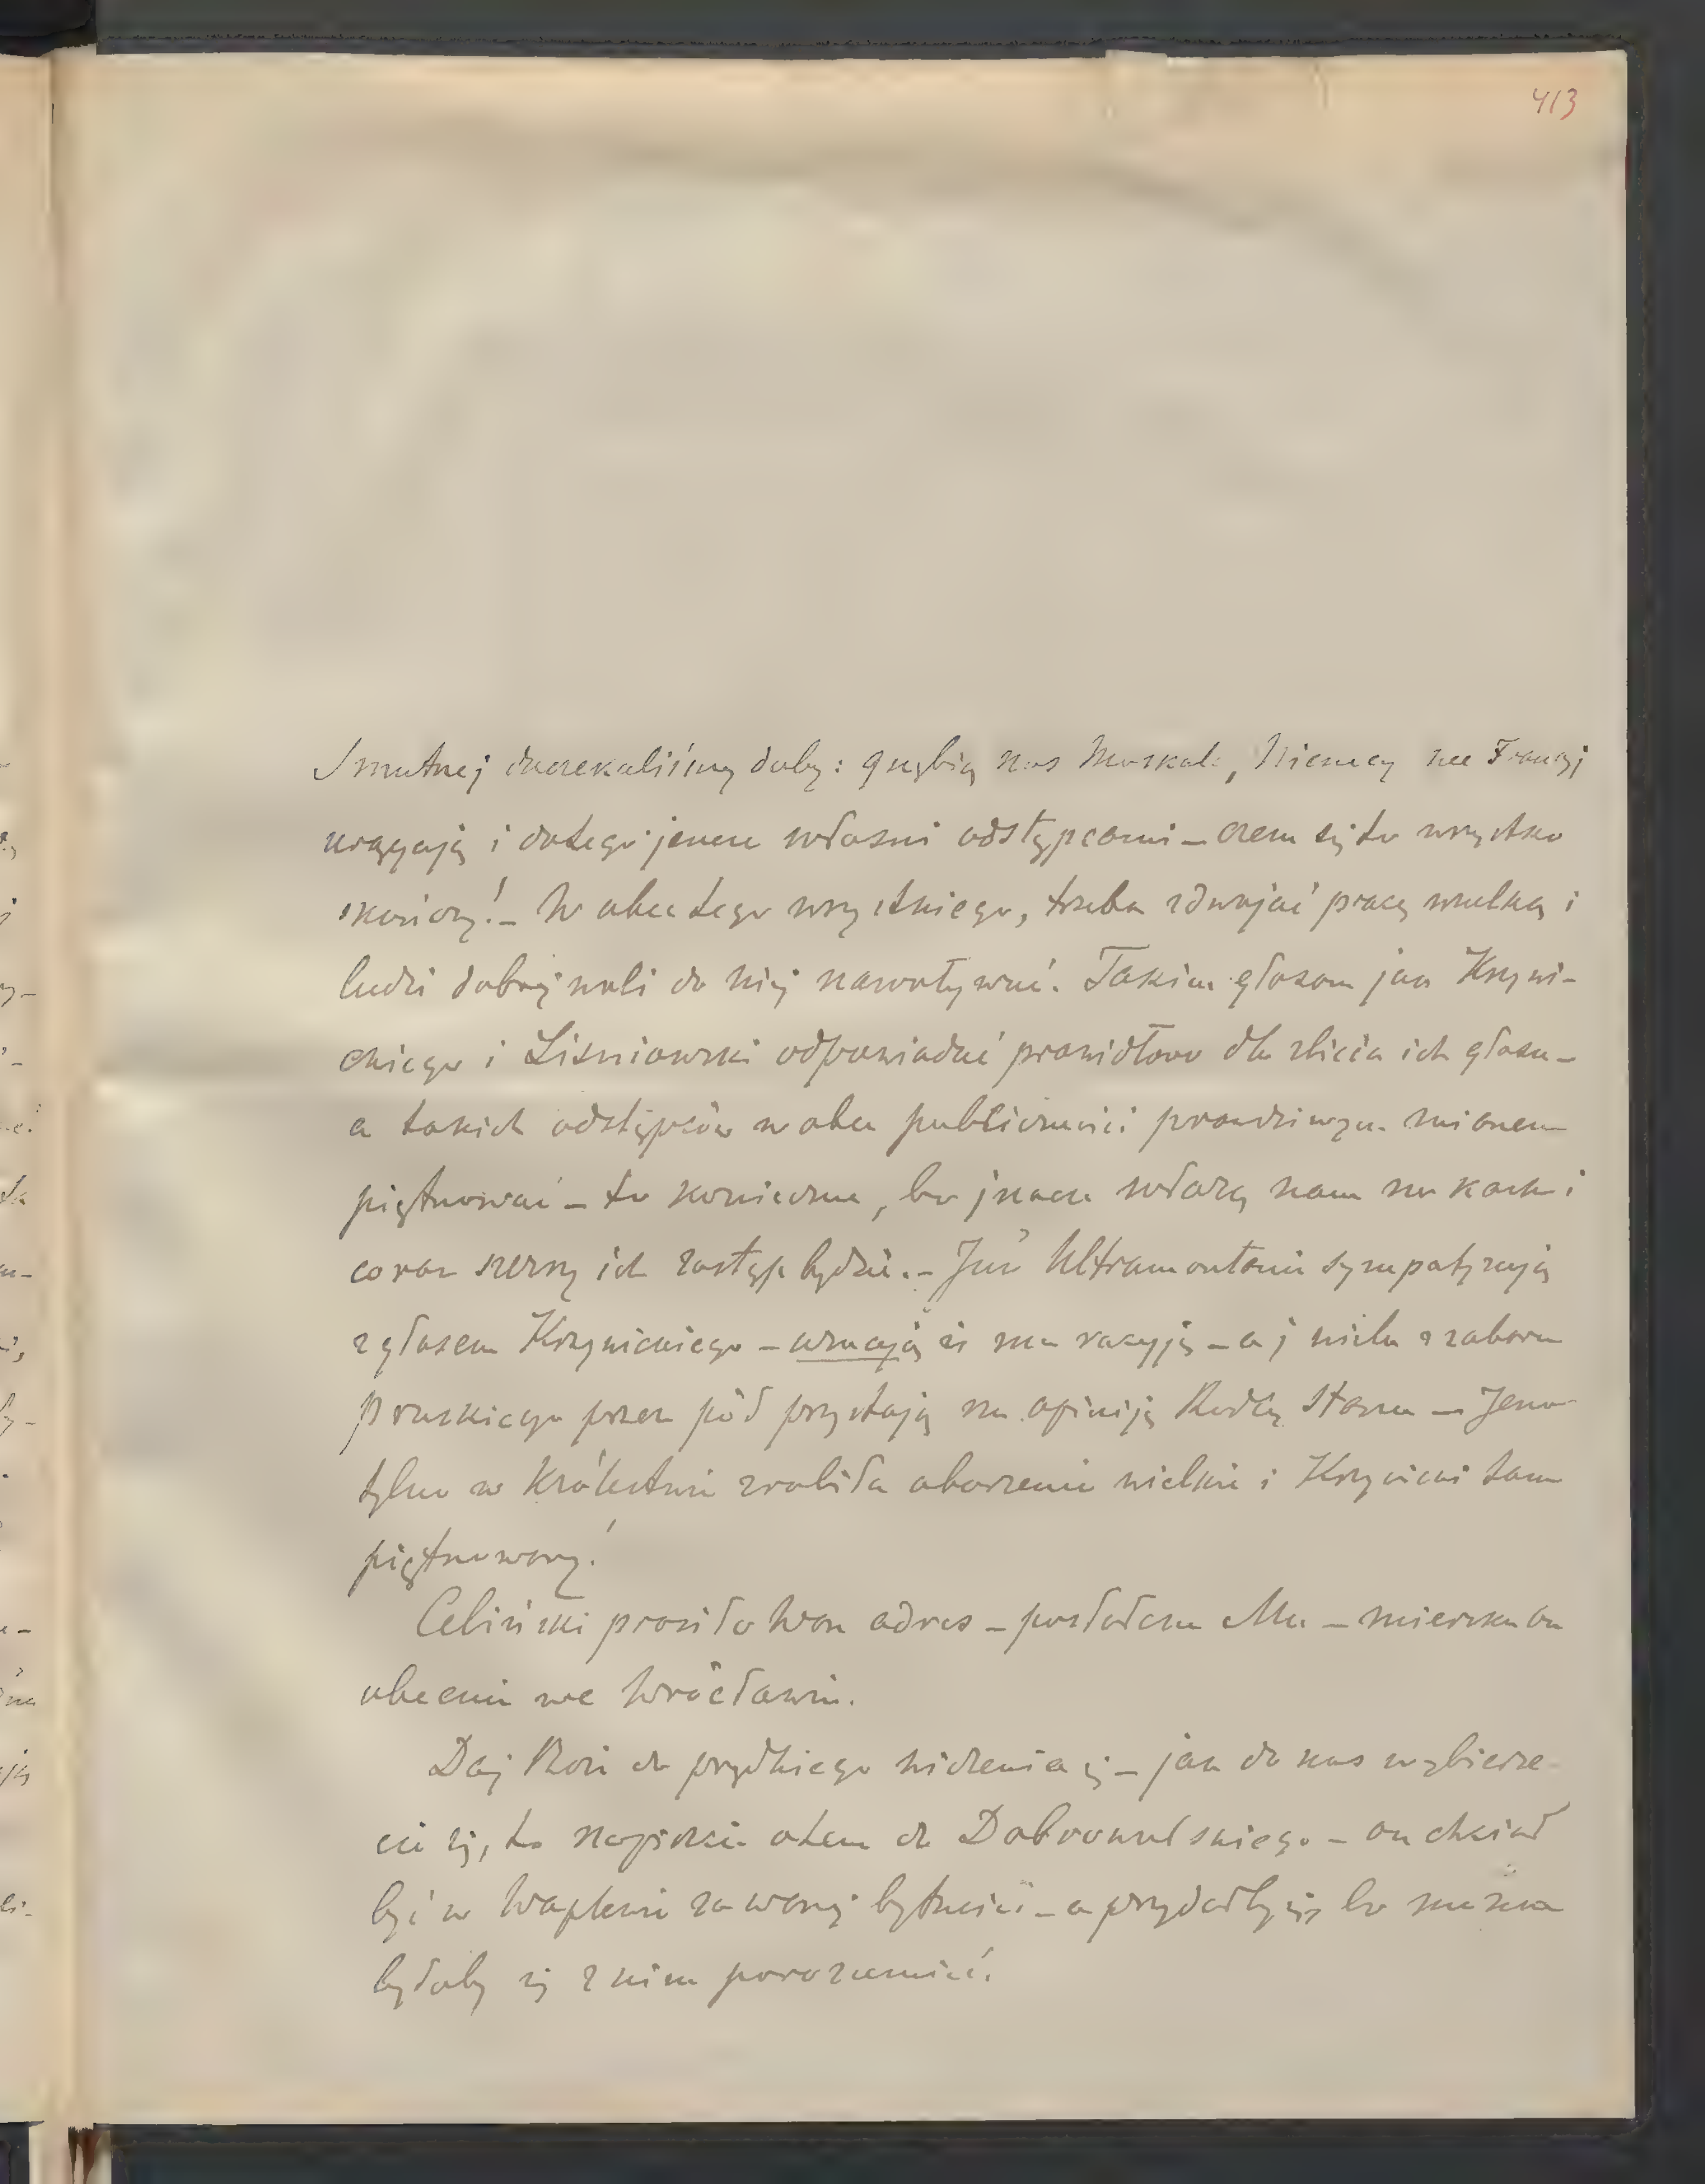 413
Smutnej doczekaliśmy doby: gnębią nas Moskale, Niemcy we Francyi
urągają i do tego jeszcze własni odstępcami – czem się to wszystko
skończy! – Wobec tego wszystkiego, trzeba zdwajać pracę wszelką i
ludzi dobrej woli do niej nawoływać. Takim głosom jak Krzywi-
ckiego i Liśniowski odpowiadać prawidłowo dla zbicia ich głosu –
a takich odstępców wobec publiczności prawdziwym mianem
piętnować – to konieczne, bo jnacze wlazą nam na kark i
coraz szerszy ich zastęp będzie. – Już Ultramontanie sympatyzują
z głosem Krzywickiego – uznają iż ma racyję – a j wielu z zaboru
Pruskiego przez pół przystają na opiniję Radcy Stanu – Jeno
tylko w Królestwie zrobiła oburzenie wielkie i Krzywicki tam
piętnowany!
Celiński prosił o Wasz adres – posłałem Mu – mieszka on
obecnie we Wrocławiu.
Daj Boże do prędkiego widzenia się – jak do nas wybierze-
cie się, to napiszcie o tem do Dobrowolskiego – on chciał
być w Waplewie za waszej bytności – a przydałby się, bo można
byłoby się z nim porozumieć.